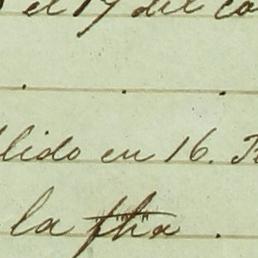 el 19 del co
llido en 16.
la fha.